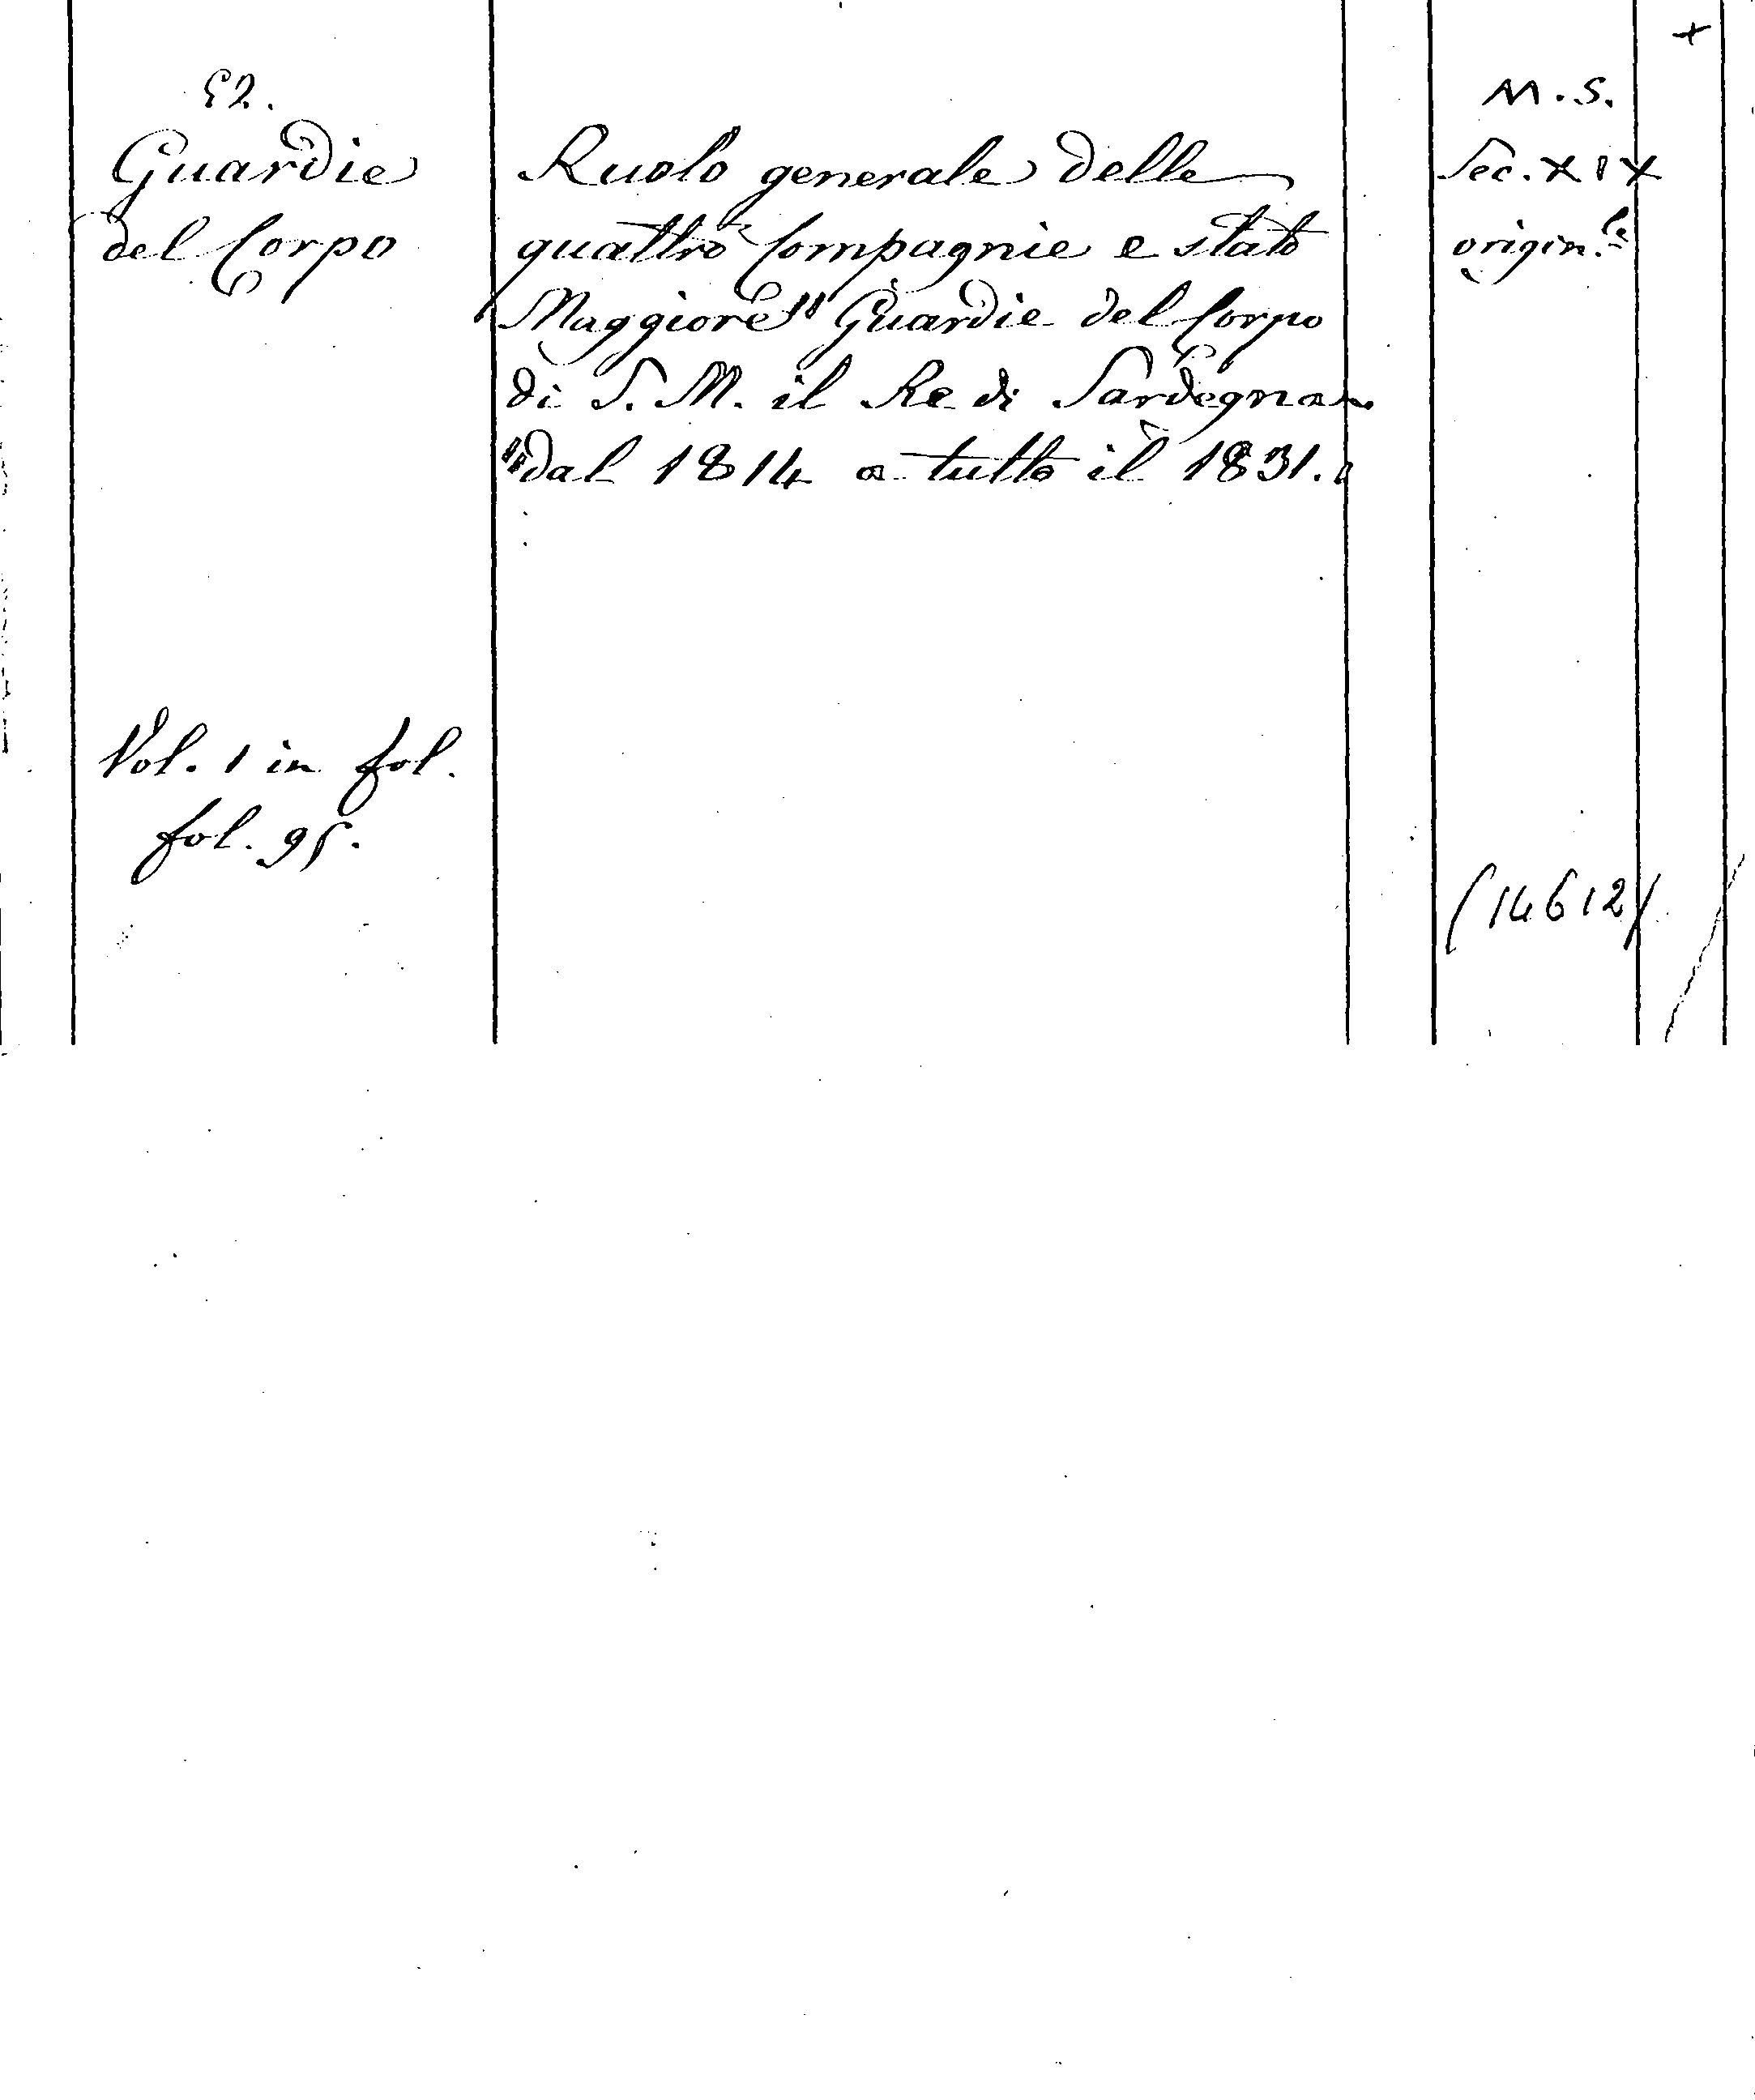 52.
Guardie
del Corpo
Vol. 1 in fol.
fol. 95.
Ruolo generale delle
quattro Compagnie e stato
Maggiore " Guardie del Corpo
di S. M. il Re di Sardegna
" dal 1814 a tutto il 1831.
+
M. S.
Sec. XIX
origin.le
(14612)